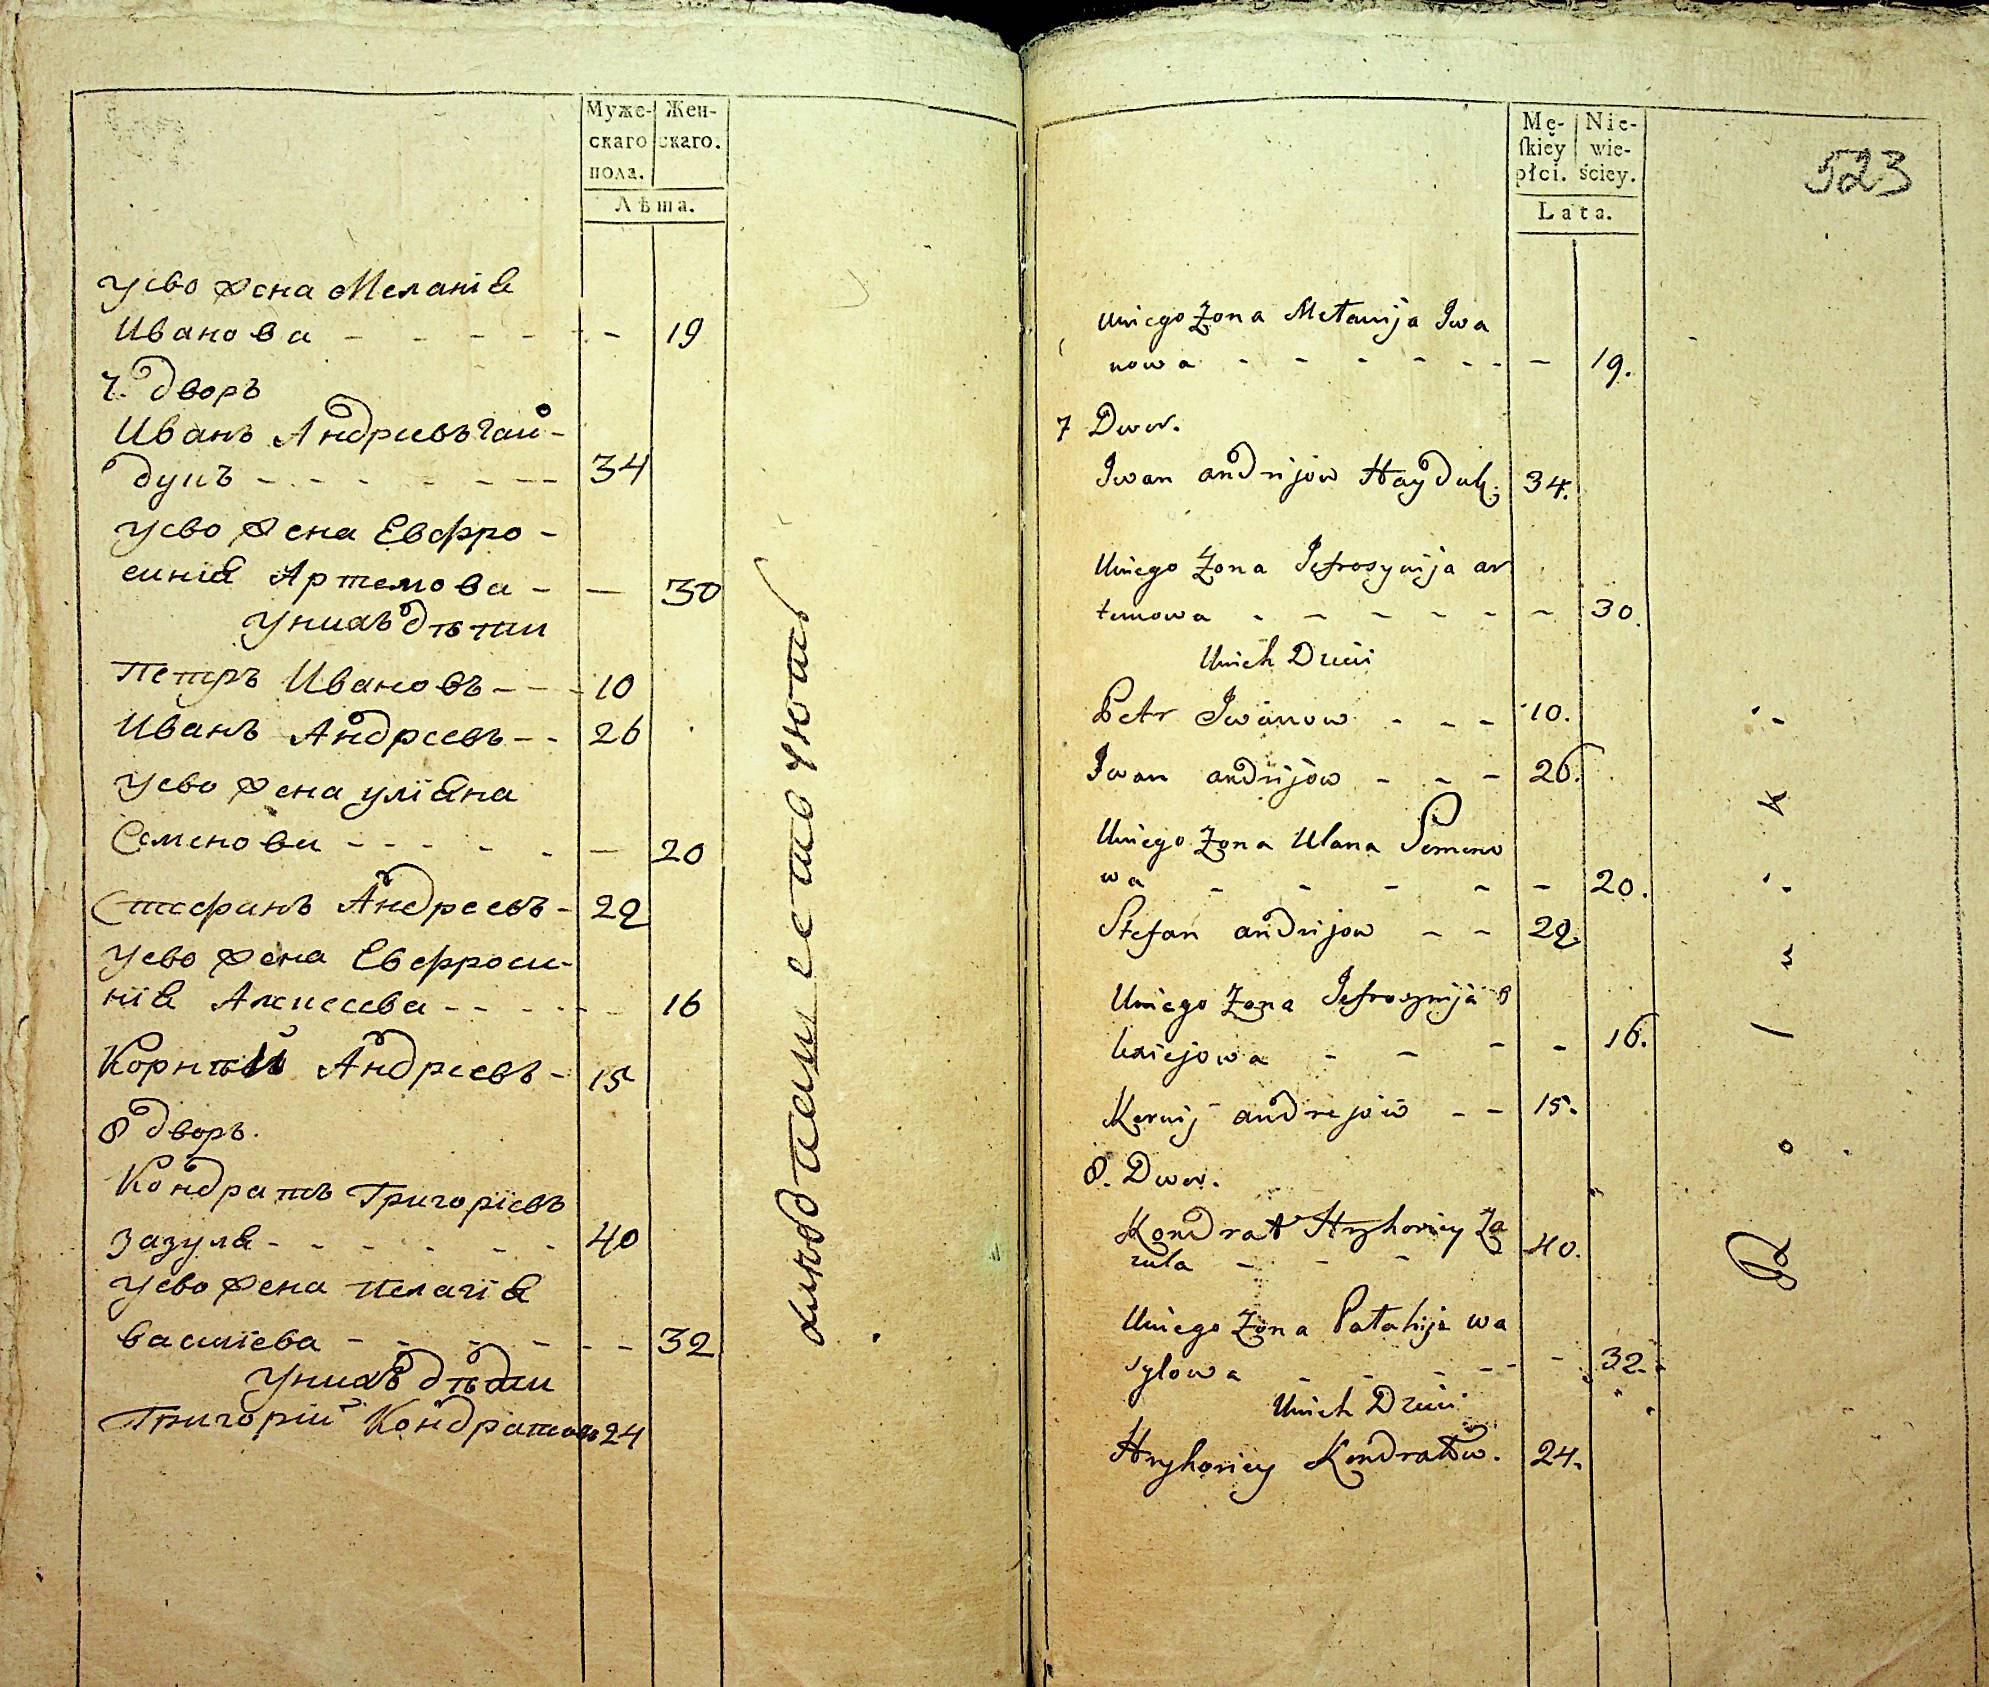 Муже- Жен-
скаго скаго.
пола.
Лѣта.
уево жена Меланія
Иванова - - - - - - 19
7. дворъ
Иванъ Андреевъ Гай-
дукъ - - - - - - - 34
уево жена Евфро-
синія Артемова - — 30
унихъ дѣти
Петръ Ивановъ - - - 10
Иванъ Андреевъ - - 26
уево жена уліяна
Семенова - - - - - — 20
Стефанъ Андреевъ - 22
уево жена Евфроси-
нія Алксеева - - - - - - 16
Корнѣй Андреевъ - 15
8 дворъ.
Кондратъ Григоріевъ
Зазуля - - - - - - 40
уево жена пелагія
василіева - - - - - - - 32
унихъ дѣти
Григорій Кондратовъ 24
Mę- Nie-
skiey wie-
płci. ściey.
Lata.
523
Uniego Zona Melanija Iwa
nowa - - - - - - - — 19.
7 Dwor.
Iwan andrijow Hayduk. 34.
Uniego Zona Iefrosynija ar
temowa - - - - - - - 30.
Unich Dzieci
Petr Iwanow - - - 10.
Iwan andrijow - - - 26.
Uniego Zona Ulana Semeno
wa - - - - - 20.
Stefan andrijow - - 22.
Uniego Zona Iefrosynija o
lexiejowa - - - - 16.
Kornij andrejow - - 15.
8. Dwor.
Kondrat Hryhoriey Za
zula - - - 40.
Uniego Zona Patahija wa
sylowa - - - - - - 32.
Unich Dzieci
Hryhoriey Kondratow. 24.